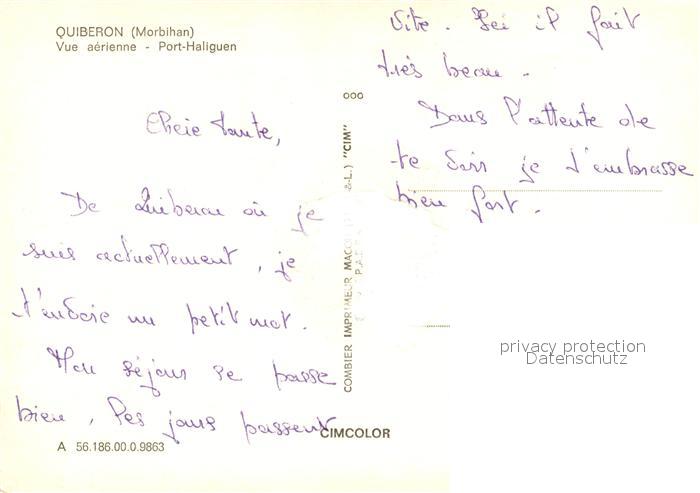 QUIBERON (Morbihan)
Vue aérienne - Port-Haliguen
Chère tante,
De Quiberon où je
suis actuellement, je
t'envoie un petit mot.
Mon séjour se passe
bien, les jours passent
vite. Ici il fait
très beau.
Dans l'attente de
te voir je t'embrasse
bien fort.
000
COMBIER IMPRIMEUR MACON &-L.) "CIM"
CIMCOLOR
A 56.186.00.0.9863
privacy protection
Datenschutz